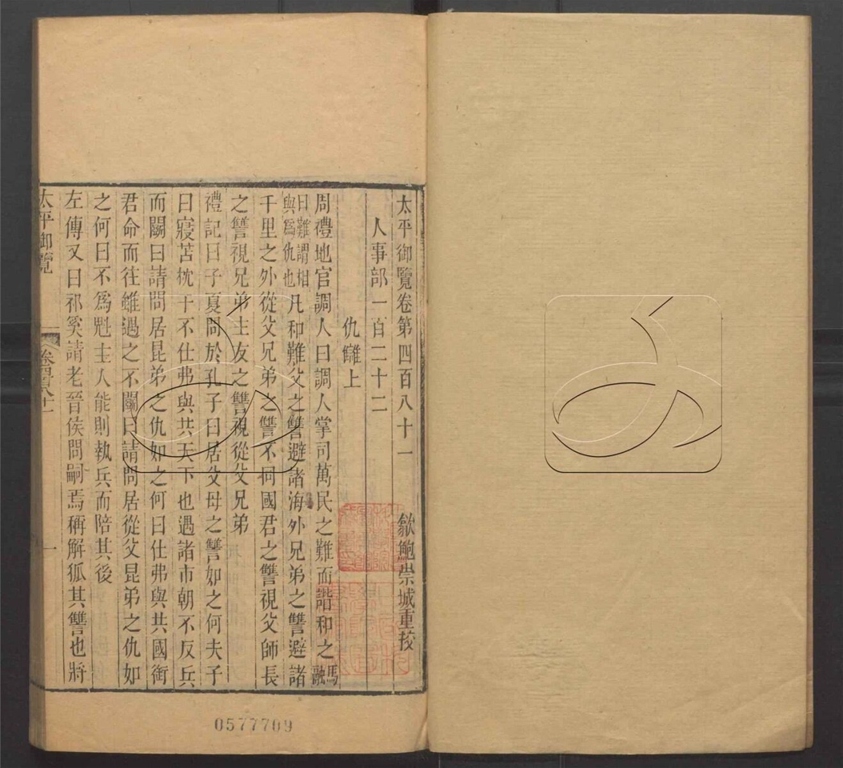 太平御覽卷第四百八十一 歙鮑崇城重挍
人事部一百二十二
仇讎上
周禮地官調人曰調人掌司萬民之難而諧和之馬融
曰難謂相與爲仇也凡和難父之讐避諸海外兄弟之讐避諸
千里之外從父兄弟之讐不同國君之讐視父師長
之讐視兄弟主友之讐視從父兄弟
禮記曰子夏問於孔子曰居父母之讐如之何夫子
曰寢苫枕干不仕弗與共天下也遇諸市朝不反兵
而鬭曰請問居昆弟之仇如之何曰仕弗與共國銜
君命而往雖遇之不鬭曰請問居從父昆弟之仇如
之何曰不爲魁主人能則執兵而陪其後
左傳又曰祁奚請老晉侯問嗣焉稱解狐其讐也將
太平御覽
一
0577709